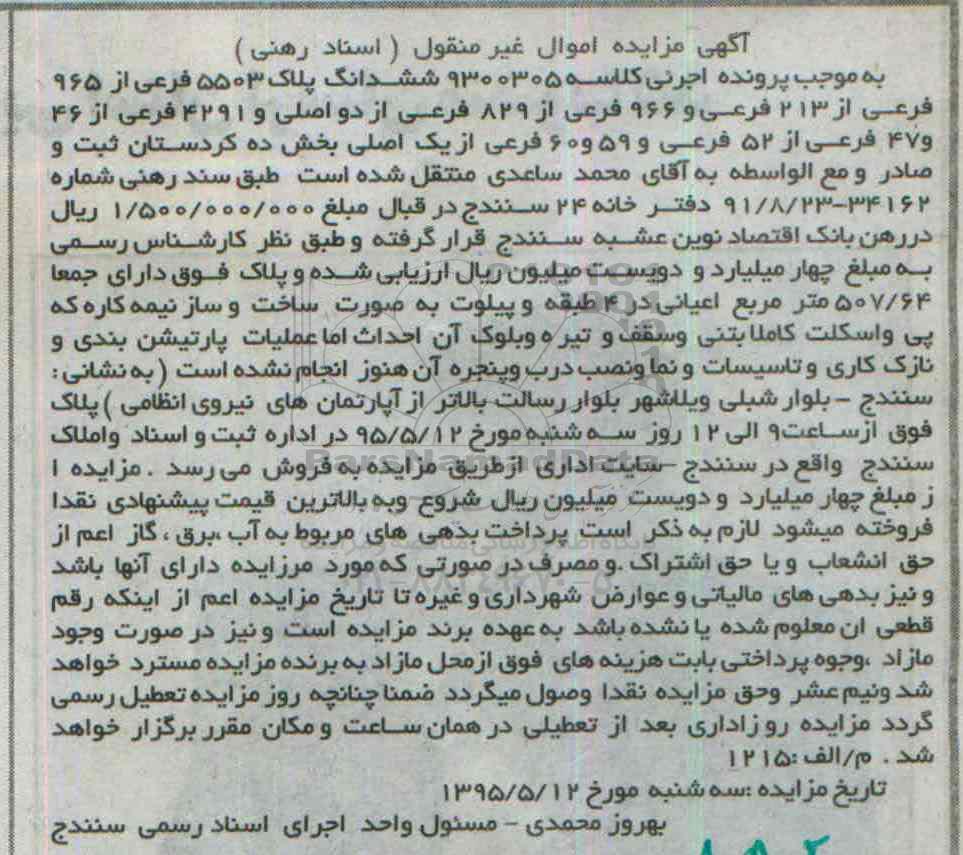 آگهی مزایده اموال غیر منقول ( اسناد رهنی )
به موجب پرونده اجرئی کلاسه ۹۳۰۰۳۰۵ ششدانگ پلاک ۵۵۰۳ فرعی از ۹۶۵
فرعی از ۲۱۳ فرعی و ۹۶۶ فرعی از ۸۲۹ فرعی از دو اصلی و ۴۲۹۱ فرعی از ۴۶
و۴۷ فرعی از ۵۲ فرعی و ۵۹ و۶۰ فرعی از یک اصلی بخش ده کردستان ثبت و
صادر و مع الواسطه به آقای محمد ساعدی منتقل شده است طبق سند رهنی شماره
۳۴۱۶۲-۹۱/۸/۲۳ دفتر خانه ۲۴ سنندج در قبال مبلغ ۱/۵۰۰/۰۰۰/۰۰۰ ریال
دررهن بانک اقتصاد نوین عشبه سنندج قرار گرفته و طبق نظر کارشناس رسمی
به مبلغ چهار میلیارد و دویست میلیون ریال ارزیابی شده و پلاک فوق دارای جمعا
۵۰۷/۶۴ متر مربع اعیانی در ۴ طبقه و پیلوت به صورت ساخت و ساز نیمه کاره که
پی واسکلت کاملا بتنی وسقف و تیر ه وبلوک آن احداث اما عملیات پارتیشن بندی و
نازک کاری و تاسیسات و نما ونصب درب وپنجره آن هنوز انجام نشده است ( به نشانی :
سنندج – بلوار شبلی ویلاشهر بلوار رسالت بالاتر از آپارتمان های نیروی انظامی ) پلاک
فوق ازساعت۹ الی ۱۲ روز سه شنبه مورخ ۹۵/۵/۱۲ در اداره ثبت و اسناد واملاک
سنندج واقع در سنندج –سایت اداری ازطریق مزایده به فروش می رسد . مزایده ا
ز مبلغ چهار میلیارد و دویست میلیون ریال شروع وبه بالاترین قیمت پیشنهادی نقدا
فروخته میشود لازم به ذکر است پرداخت بدهی های مربوط به آب ،برق ، گاز اعم از
حق انشعاب و یا حق اشتراک .و مصرف در صورتی که مورد مرزایده دارای آنها باشد
و نیز بدهی های مالیاتی و عوارض شهرداری و غیره تا تاریخ مزایده اعم از اینکه رقم
قطعی ان معلوم شده یا نشده باشد به عهده برند مزایده است و نیز در صورت وجود
مازاد ،وجوه پرداختی بابت هزینه های فوق ازمحل مازاد به برنده مزایده مسترد خواهد
شد ونیم عشر وحق مزایده نقدا وصول میگردد ضمنا چنانچه روز مزایده تعطیل رسمی
گردد مزایده رو زاداری بعد از تعطیلی در همان ساعت و مکان مقرر برگزار خواهد
شد . م/الف :۱۲۱۵
تاریخ مزایده :سه شنبه مورخ ۱۳۹۵/۵/۱۲
بهروز محمدی – مسئول واحد اجرای اسناد رسمی سنندج
ParsNamadData